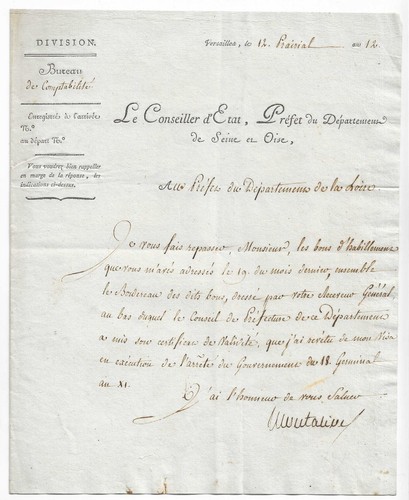 DIVISION.
Versailles, le 12 Prairial an 12.
Bureau
de Comptabilité
Enregistrés de l'arrivée
N.º
au départ N.º
Vous voudrez bien rappeller
en marge de la réponse, les
indications ci-dessus.
Le Conseiller d'Etat, Préfet du Département
de Seine et Oise,
Au Préfet du Département de la Loire
Je vous fais repasser, Monsieur, les bons d'habillement
que vous m'avés adressé le 19 du mois dernier, ensemble
le Bordereau des dits bons, dressé par votre Receveur Général
au bas duquel le Conseil de Préfecture de ce Département
a mis son certificat de Validité, que j'ai revêtu de mon Visa
en exécution de l'arrêté du Gouvernement du 18 Germinal
an XI.
J'ai l'honneur de vous Saluer
Montalivet